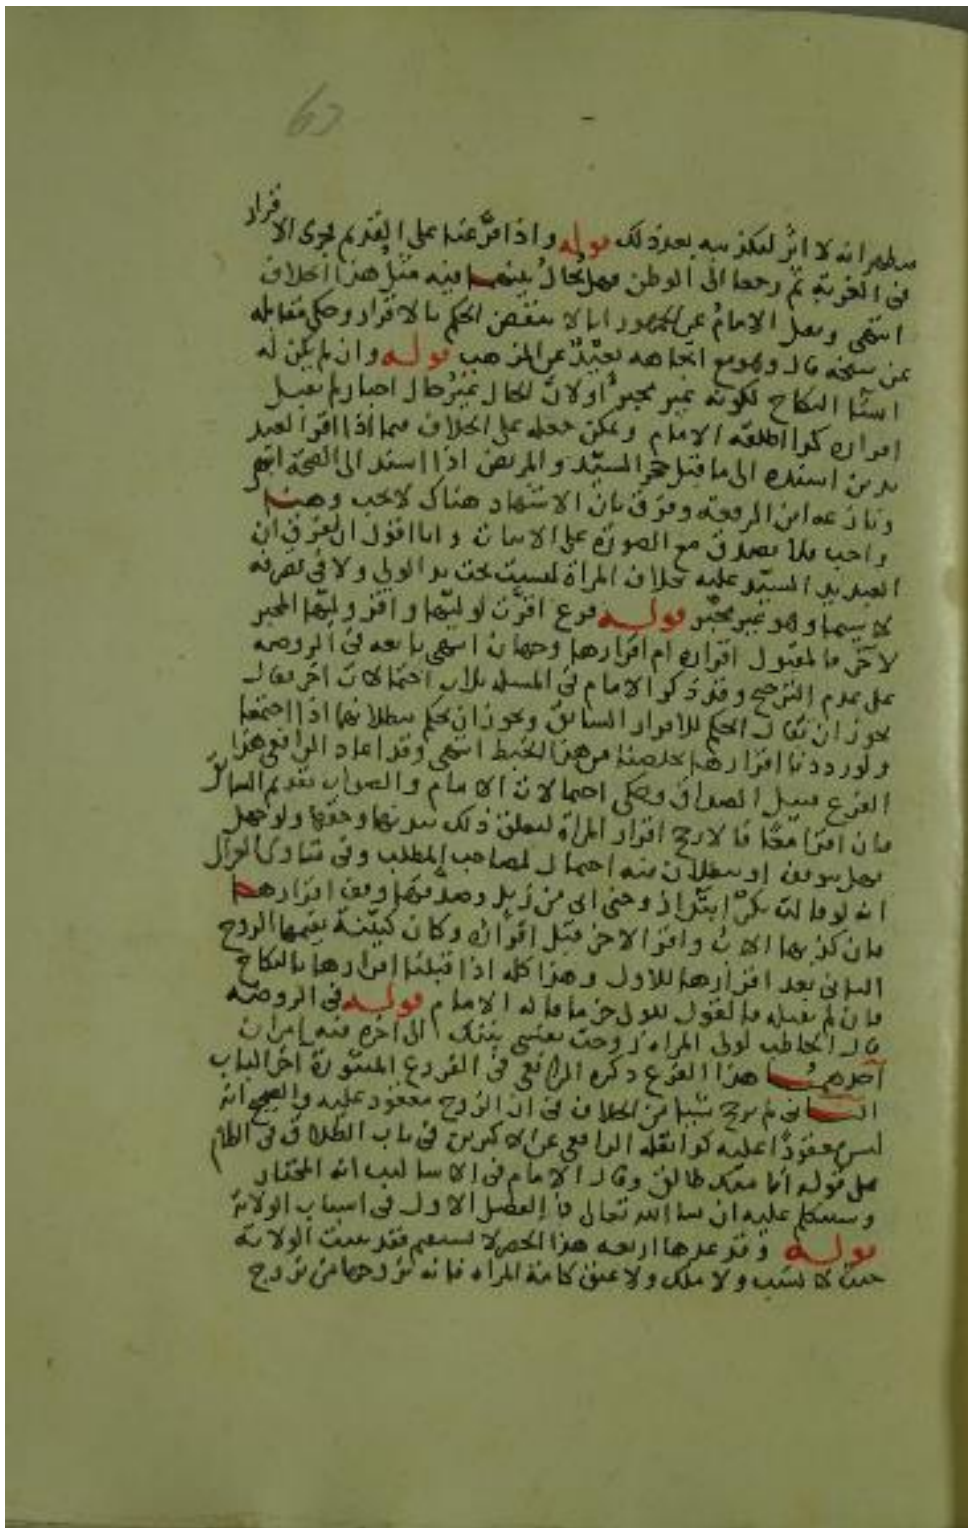 63
فيظهر انه لا اثر لتكذيبه بعد ذلك قوله واذا فرعنا على القديم فجرى الاقرار
فى الغربة ثم رجعا الى الوطن فهل يحال بينهما فيه مثل هذا الخلاف
انتهى ونقل الامام عن الجمهور انا لا ننقض الحكم بالاقرار وحكى مقابله
عن شيخه قال وهو مع اتجاهه بعيد عن المذهب قوله وان لم يكن له
انشا النكاح لكونه غير مجبر او لان الحال غير حال اجبار لم يقبل
اقراره كذا اطلقه الامام ويمكن جعله على الخلاف فيما اذا اقر العبد
بدين اسنده الى ما قبل حجر السيد والمريض اذا اسند الى الصحة انتهى
ونازعه ابن الرفعة وفرق بان الاشهاد هناك لا يجب وهنا
واجب فلا يصدق مع الصورة على الاثبات وانا اقول الفرق ان
العبد يد السيد عليه بخلاف المراة ليست تحت يد الولي ولا في تصرفه
لا سيما وهو غير مجبر قوله فرع اقرت لوليها واقر وليها المجبر
لاخر فالمقبول اقراره ام اقرارها وجهان انتهى تابعه فى الروضه
على عدم الترجيح وقد ذكر الامام فى المسله ثلاث احتمالات اخر فقال
يجوز ان يقال الحكم للاقرار السابق ويجوز ان يحكم ببطلانهما اذا اجتمعا
ولو رددنا اقرارها لخلصنا من هذا الخبط انتهى وقد اعاد الرافعي هذا
الفرع قبيل الصداق وحكى احتمالات الامام والصواب تقديم السابق
فان اقرا معا فالارجح اقرار المراة لتعلق ذلك ببدنها وحقها ولو جهل
فهل يوقف او يبطلان فيه احتمال لصاحب المطلب وفى فتاوى الغزالي
انه لو قالت بكر ابتدا زوجنى ابى من زيد وصدقها وقف اقرارها
فان كذبها الاب واقر لاخر قبل اقراره وكان كبينة يقيمها الزوج
الثانى بعد اقرارها للاول وهذا كله اذا قبلنا اقرارها بالنكاح
فان لم نقبله فالقول للولي جزما قاله الامام قوله فى الروضه
قال الخاطب لولى المراه زوجت نفسي بنتك الى اخره فيه امران
احدهما هذا الفرع ذكره الرافعى فى الفروع المنثورة اخر الباب
الثانى لم يرجح شيا من الخلاف فى ان الزوج معقود عليه والصحيح انه
ليس معقودا عليه كذا نقله الرافعي عن الاكثرين فى باب الطلاق فى الكلام
على قوله انا منك طالق وقال الامام فى الاساليب انه المختار
وسنتكلم عليه ان شا الله تعالى فالفصل الاول فى اسباب الولاية
قوله وقد عدها اربعه هذا الحصر لا يستقيم فقد تثبت الولاية
حيث لا نسب ولا ملك ولا عتق كامة المراه فانه يزوجها من يزوج